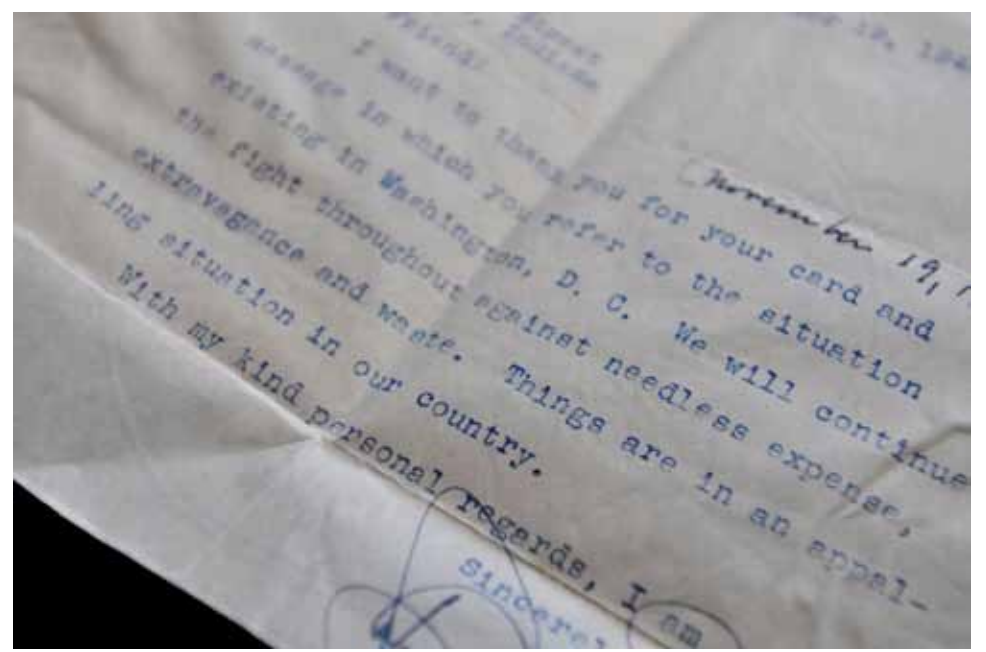 19, 194
Street
Indiana
Friend:
I want to thank you for your card and
message in which you refer to the situation
existing in Washington, D. C. We will continue
the fight throughout against needless expense,
extravagance and waste. Things are in an appal-
ling situation in our country.
With my kind personal regards, I am
Sincerel
November 19, 1